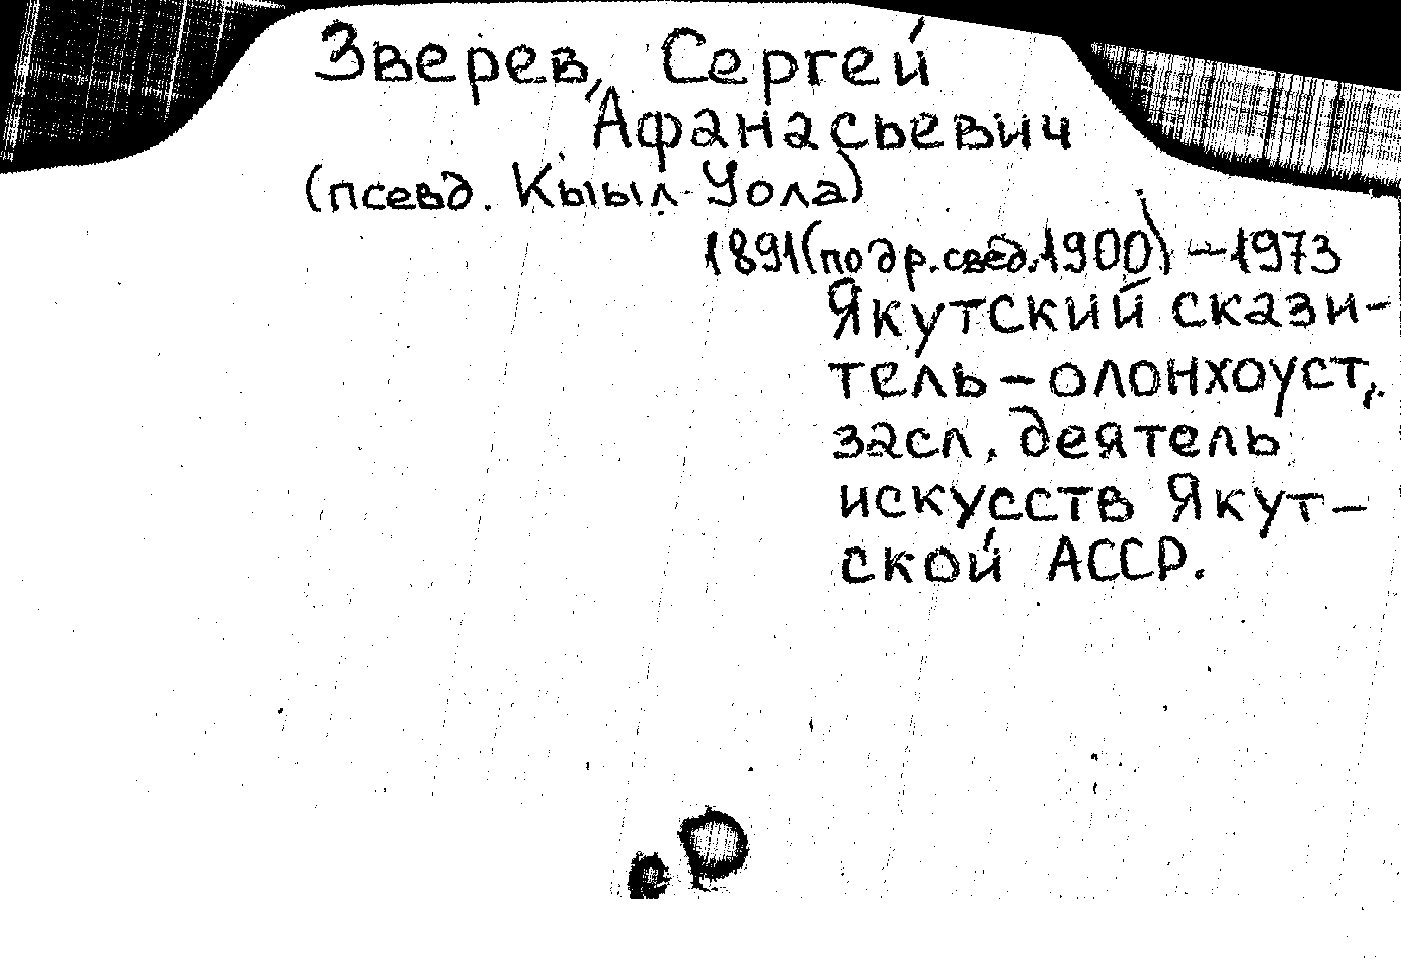 Зверев, Сергей
Афанасьевич
(псевд. Кыыл Уола)
1891(по др.свед.1900) – 1973
Якутский скази-
тель – олонхоуст,
засл. деятель
искусств Якут-
ской АССР.